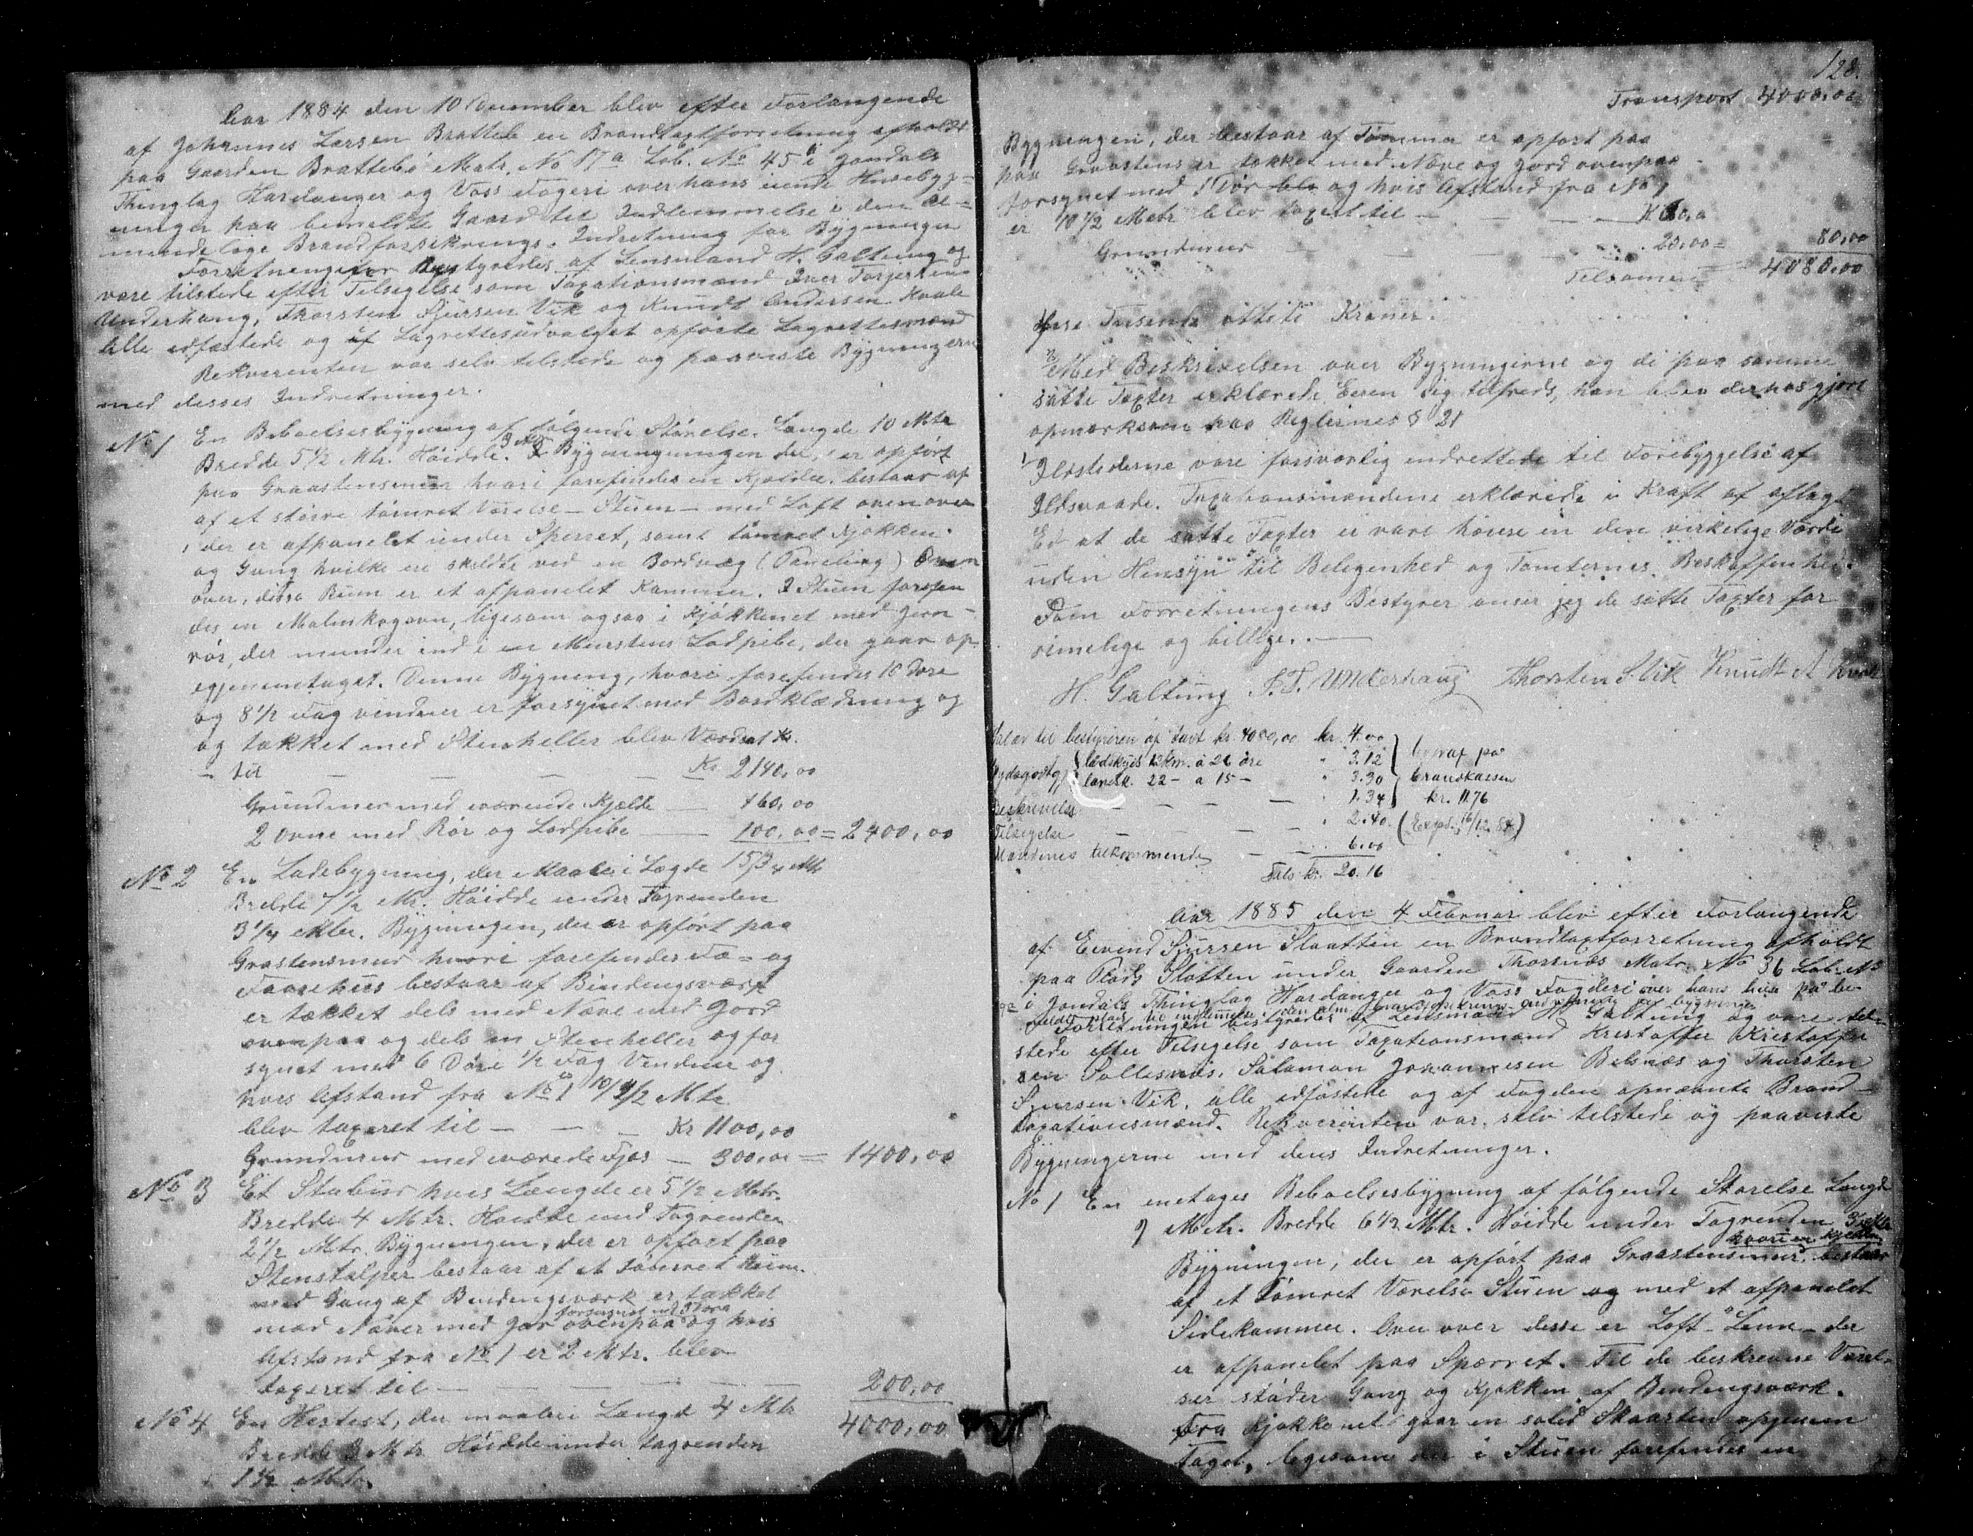 Aar 1884 den 10 December blev efter Forlangende
af Johannes Larsen Brattebö en Brandtaxtforretning afholdt
paa Gaarden Brattebö Matr. No 17a Löb. No 45 i Jondals
Thinglag Hardanger og Voss Fogderi over hans eiende Husebyg-
ninger paa bemeldte Gaard til Indlemmelse i den al-
mindelige Brandforsikrings-Indretning for Bygninger
Forretningen bestyredes af Lensmand H. Galtung og
vare tilstede efter Tilsigelse som Taxationsmænd Iver Torjersen
Underhaug, Thorsten Sjursen Vik og Knudt Andersen Kvale
alle edfæstede og af Lagrettesudvalget opförte Lagrettesmænd
Rekvirenten var selv tilstede og paaviste Bygningerne
med disses Indretninger.
No 1 En Beboelsesbygning af fölgende Störelse. Længde 10 Mtr
Bredde 5 1/2 Mtr. Höidde 3 Mtr. Bygningningen der er opfört
paa Graastensmuur hvori forefindes en Kjælder, bestaar af
af et större tömret Værelse - Stuen - med Loft ovenover
, der er afpanelet under Sperret, samt tömret Kjökken
og Gang hvilke ere skildte ved en Bordvæg (Paneling) Oven
over disse Rum er et afpanelet Kammer. I Stuen forefin
des en Malmkogovn, ligesom ogsaa i Kjökkenet med Jern-
rör, der munder ind i en Murstens Lodpibe, der gaar op
egjennemtaget. Denne Bygning, hvori forefindes 10 Döre
og 8 1/2 Fag venduer er forsynet med Bordklædning og
og tækket med Stenheller blev Værdsat
- til — — — — Kr 2140,00
Grundmur med værende Kjelder — 160,00
2 Ovne med Rör og Lodpibe — 100,00 = 2400,00
No 2 En Ladebygning, der maaler i Længde 15 3/4 Mtr
Bredde 7 1/2 Mtr. Höidde under Tagrenden
3 1/4 Mtr. Bygningen, der er opfört paa
Grastensmur hvori forefindes Fæ- og
Faarehus bestaar af Bindingsværk
er tækket dels med Næve med Jord
ovenpaa og dels m Stenheller og for
synet med 6 Döre 1/2 Fag Venduer og
hvis Afstand fra No 1 er 10 1/2 Mtr
blev taxeret til — — — Kr 1100,00
Grundmur med værende Fjøs — 300,00 = 1400,00
No 3 Et Stabur hvis Længde er 5 1/2 Mtr.
Bredde 4 Mtr. Höidde und Tagrenden
2 1/2 Mtr. Bygningen, der er opfört paa
Stenstolper bestaar af et tömret Rum
med Gang af Bindingsværk er tækket
forsynet med 3 Döre
med Næver med Jor ovenpaa og hvis
Afstand fra No 1 er 2 Mtr. blev
taxeret til — — — — 200,00
4000,00
No 4 En Hestest, der maaler i Længde 4 Mtr
Bredde 3 Mtr. Höidde under tagrenden
1 1/2 Mtr.
128.
Transport 4000,00
Bygningen, der bestaar af Tömmer er opfört paa
paa Graastens er tækket med Næve og jord ovenpaa
forsynet med 1 Dör og hvis Afstand fra No 1
er 10 1/2 Mtr blev taxeret til — — — 60,0
Grundmur — — — 20,00 = 80,00
Tilsammen 4080,00
Fire Tusende ottiti Kroner.
Med Beskrivelsen over Bygningerne og de paa samme
satte Taxter erklærede Eieren sig tilfreds, han blev derhos gjort
opmærksom paa Reglernes § 21
Ildstederne vare forsvarlig indrettede til Forebyggelse af
Ildsvaade. Taxationsmændene erklærede i Kraft af aflagt
Ed at de satte Taxter ei vare höiere en den virkelige Værdi
uden Hensyn til Belegenhed og Tomternes Beskaffenhed.
Som Forretningens Bestyrer anser jeg de satte Taxter for
rimelige og billige. —
H. Galtung I. T. Underhaug Thorsten S. Vik Knudt A Kvale
Salær til bestyreren af taxt kr. 4000,00 kr. 4.00
Skydsgodtgj. sködskyds 12 km. a 26 øre " 3.12
landsk. 22 - a 15 - " 3.30
Beskrivelse — — — — " 1.34
hvoraf på
brandkassen
kr. 11.76
Tilsigelse — — — — " 2.40. (Exp. 16/12. 84)
Mændenes tilkommende — — " 6.00
Tils kr. 20.16
Aar 1885 den 4 Februar blev efter Forlangende
af Eivend Sjursen Slaatten en Brandtaxtforretning afholdt
paa Plads Slatten under Gaarden Thorsnæs Matr. No 36 Lob. No
i Jondals Thinglag Hardanger og Voss Fogderi over hans hus på be-
meldte plads til indlemmelse i den alm. brandforsikrings-indretning for bygninger
Forretningen bestyredes af Lensmand H Galtung og vare til-
stede efter Tilsigelse som Taxationsmænd Kristoffer Kristoffer
sen Sollesnæs, Salamon Johannesen Belsnæs og Thorsten
Sjursen Vik, alle edföstede og af Fogden opnævnte Brand-
taxationsmænd. Rekvirenten var selv tilstede og paaviste
Bygningerne med dens Indretninger.
No 1 En enetages Beboelsesbygning af fölgende Störelse Længde
9 Mtr. Bredde 6 1/2 Mtr. Höidde under Tagrenden 3 Mtr
hvori en kjelder
Bygningen, der er opfört paa Graastensmur, bestaar
af et Tömret Værelse Stuen og med et afpanelet
Sidekammer. Oven over desse er Loft - Lem - der
er afpanelet paa Spærret. Til de beskrevne Værel-
ser stöder Gang og Kjökken af Bindingsværk.
Fra Kjökkenet gaar en solid Skaarsten opjennem
Taget, ligesom der i Stuen forefindes en